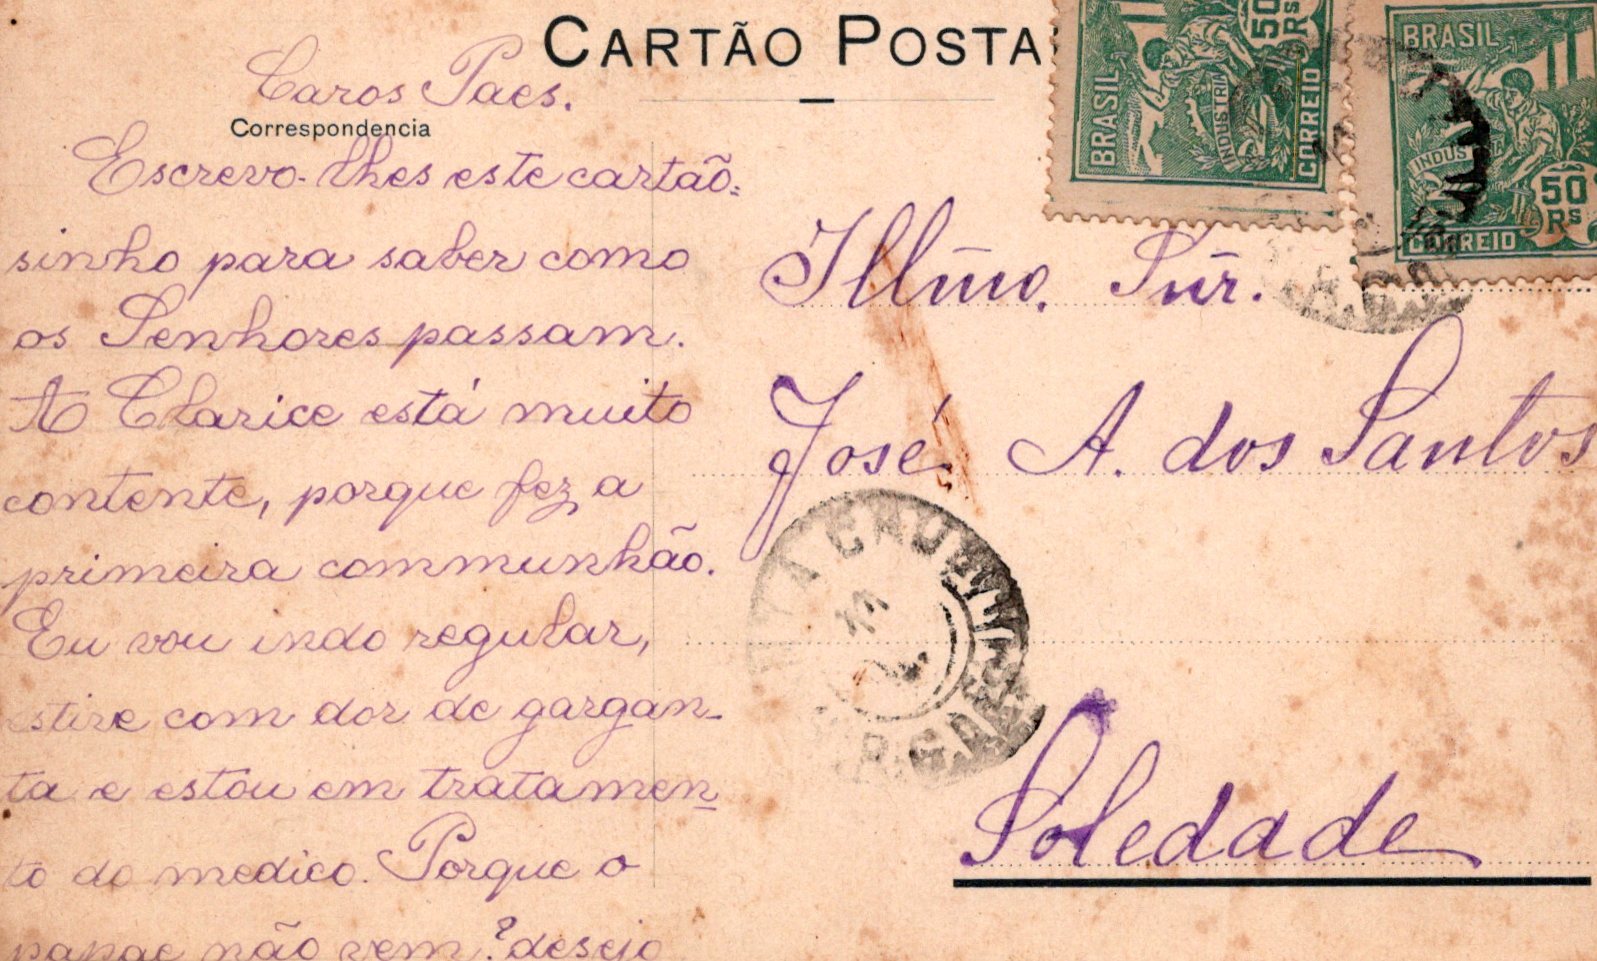 CARTÃO POSTA
Caros Paes.
Correspondencia
Escrevo-lhes este cartão=
sinho para saber como
os Senhores passam.
A Clarice está muito
contente, porque fez a
primeira communhão.
Eu vou indo regular,
estive com dor de gargan-
ta e estou em tratamen-
to do medico. Porque o
papae não vem? desejo
BRASIL
50 RS
INDUSTRIA
CORREIO
BRASIL
INDUS
50
RS
CORREIO
Illmo. Snr.
José A. dos Santos
CRUZ
11
R.G. DO
Soledade